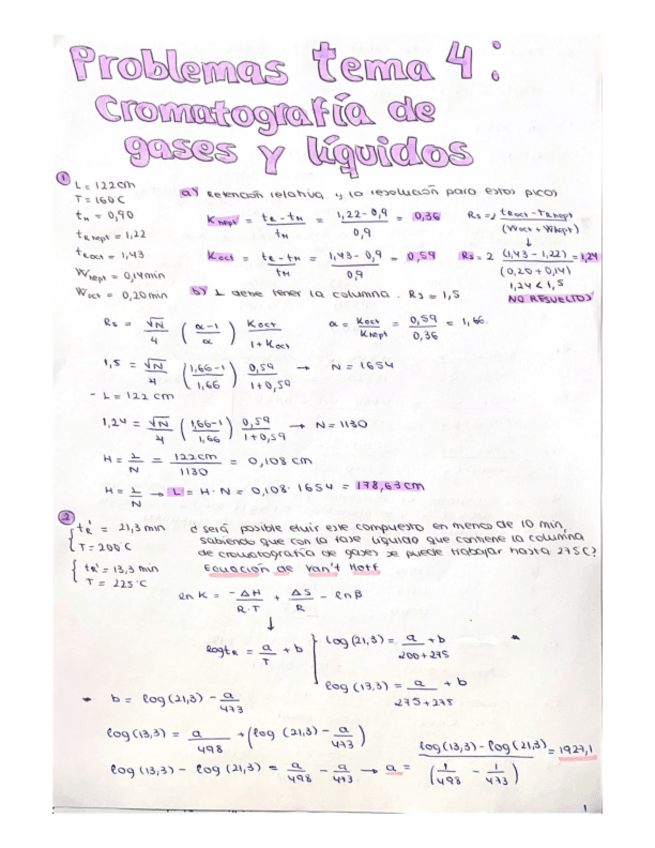 Problemas tema 4:
Cromatografía de
gases y líquidos
① L = 122 cm
T = 160 C
tM = 0,90
tR hept = 1,22
tR oct = 1,43
Whept = 0,14 min
Woct = 0,20 min
a) Retención relativa y la resolución para estos picos
Khept = (tR - tM)/tM = (1,22 - 0,9)/0,9 = 0,36
Koct = (tR - tM)/tM = (1,43 - 0,9)/0,9 = 0,59
Rs = 2 (tRoct - tRhept)/(Woct + Whept)
↓
Rs = 2 (1,43 - 1,22)/(0,20 + 0,14) = 1,24
1,24 < 1,5
NO RESUELTOS
b) L debe tener la columna. Rs = 1,5
Rs = √N/4 (α-1/α) Koct/(1 + Koct) α = Koct/Khept = 0,59/0,36 = 1,66
1,5 = √N/4 (1,66-1/1,66) 0,59/(1+0,59) → N = 1654
- L = 122 cm
1,24 = √N/4 (1,66-1/1,66) 0,59/(1+0,59) → N = 1130
H = L/N = 122cm/1130 = 0,108 cm
H = L/N → L = H · N = 0,108 · 1654 = 178,63 cm
② tR' = 21,3 min
T = 200°C
tR' = 13,3 min
T = 225°C
¿ será posible eluir este compuesto en menco de 10 min,
sabiendo que con la fase líquida que contiene la columna
de cromatografía de gases se puede trabajar hasta 275C?
Ecuación de Van't Hoff
ln K = -ΔH/R·T + ΔS/R - lnβ
↓
log tR = a/T + b
log (21,3) = a/(200+275) + b
log (13,3) = a/(275+275) + b
b = log (21,3) - a/473
log (13,3) = a/498 + (log (21,3) - a/473)
log (13,3) - log (21,3) = a/498 - a/473 → a = (log (13,3) - log (21,3))/(1/498 - 1/473) = 1927,1
1